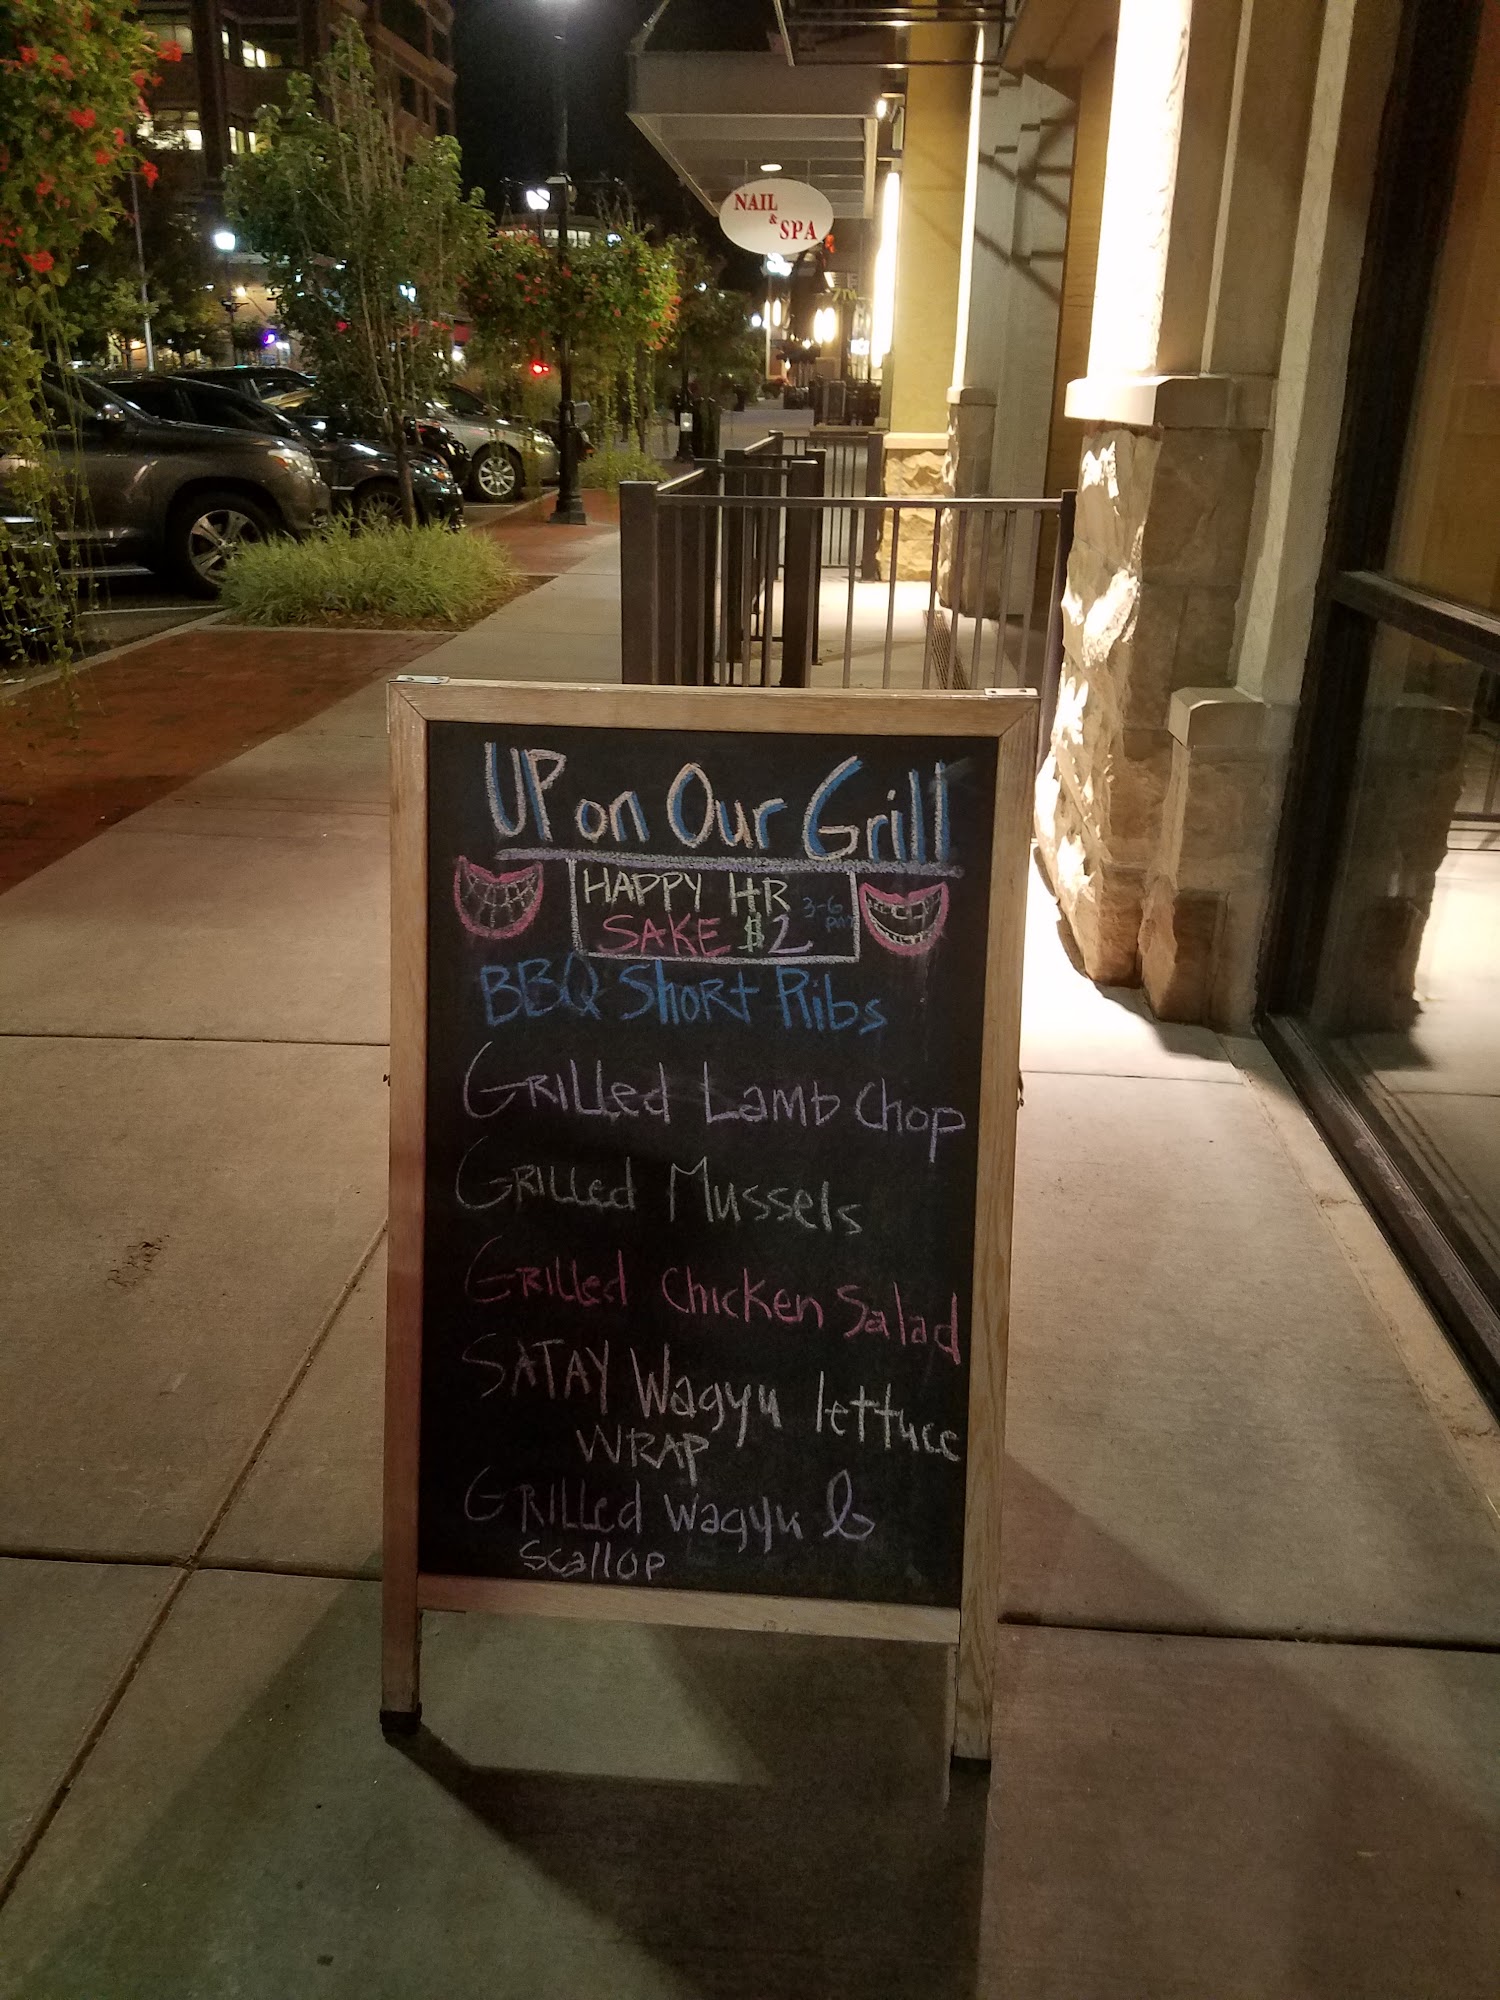 NAIL
&
SPA
UP on Our Grill
HAPPY HR 3-6
SAKE $2 PM
BBQ Short Ribs
GRILLed Lamb Chop
GRILLed Mussels
GRILLed Chicken Salad
SATAY Wagyu lettuce
WRAP
GRILLed Wagyu &
Scallop